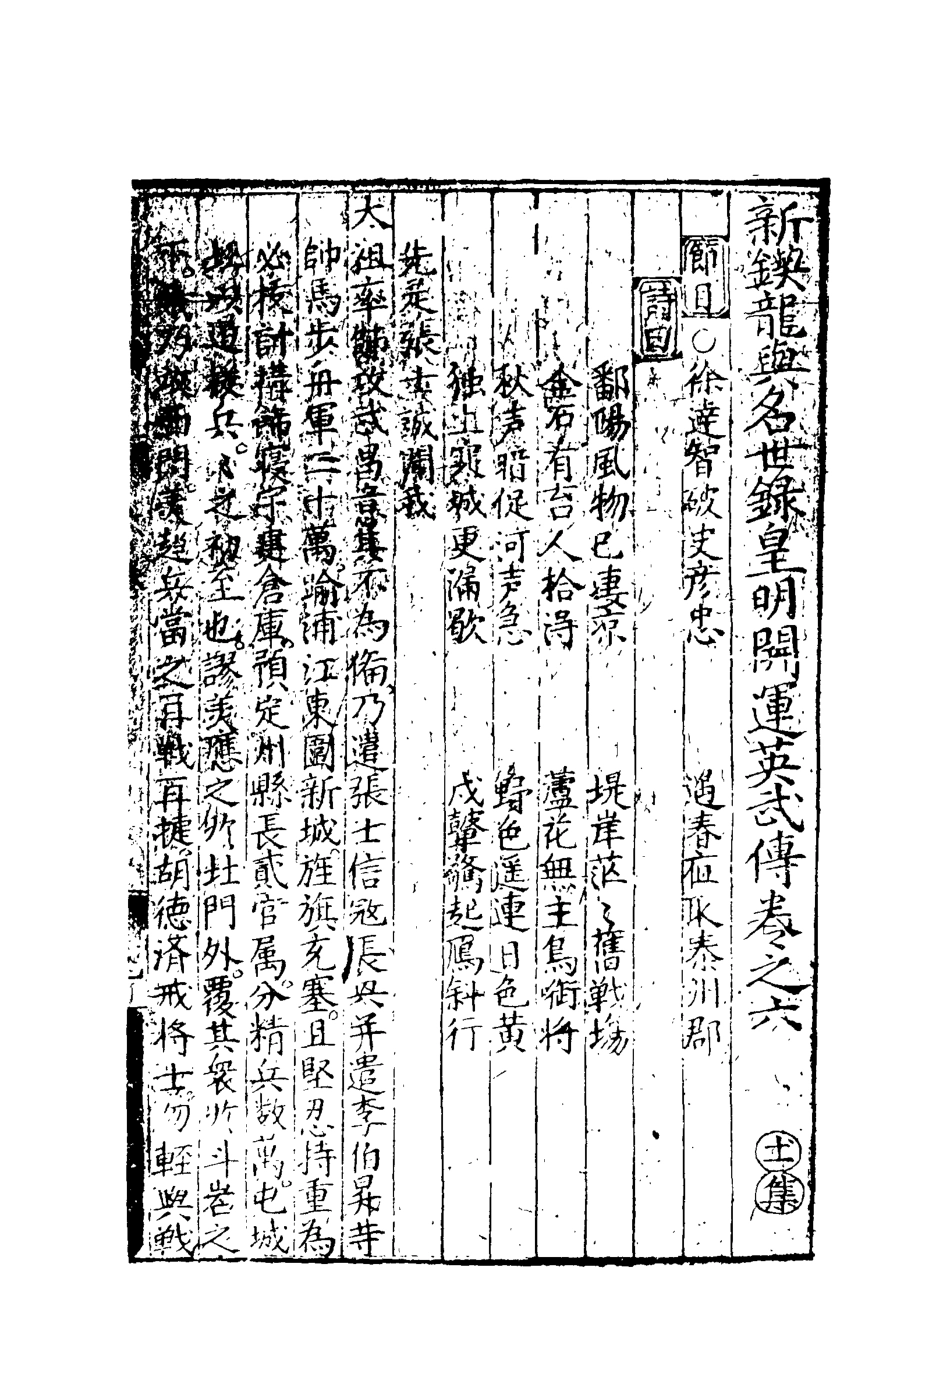 新鍥龍興名世錄皇明開運英武傳卷之六 士集
節目○徐達智破史彦忠 遇春征取泰州郡
詩曰
鄱陽風物已凄凉 堤岸茫々舊戰塲
金石有言人拾得 蘆花無主鳥銜将
秋声暗促河声急 野色遥連日色黄
独上寒城更漏歇 戍鼙驚起鴈斜行
先是張士誠聞我
太祖率師攻武昌意其不為俻乃遣張士信冦長兴并遣李伯昇䓁
帥馬步舟軍二十萬踰浦江東圍新城旌旗充塞且堅忍持重為
必㧞計搆飾寝宇建倉庫預定州縣長貳官属分精兵数萬屯城
北以遏援兵之初至也謬美應之於北門外覆其衆於斗岩之
下 西門美趋兵當之再戰再捷胡德済戒将士勿輕與戰